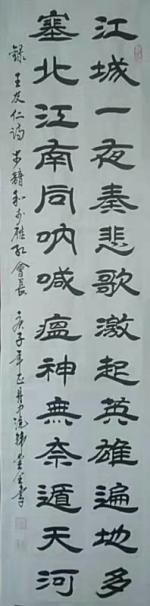 江城一夜奏悲歌激起英雄遍地多
塞北江南同呐喊瘟神無奈遁天河
錄王友仁詞步韻和于雅紅會長
庚子年正月